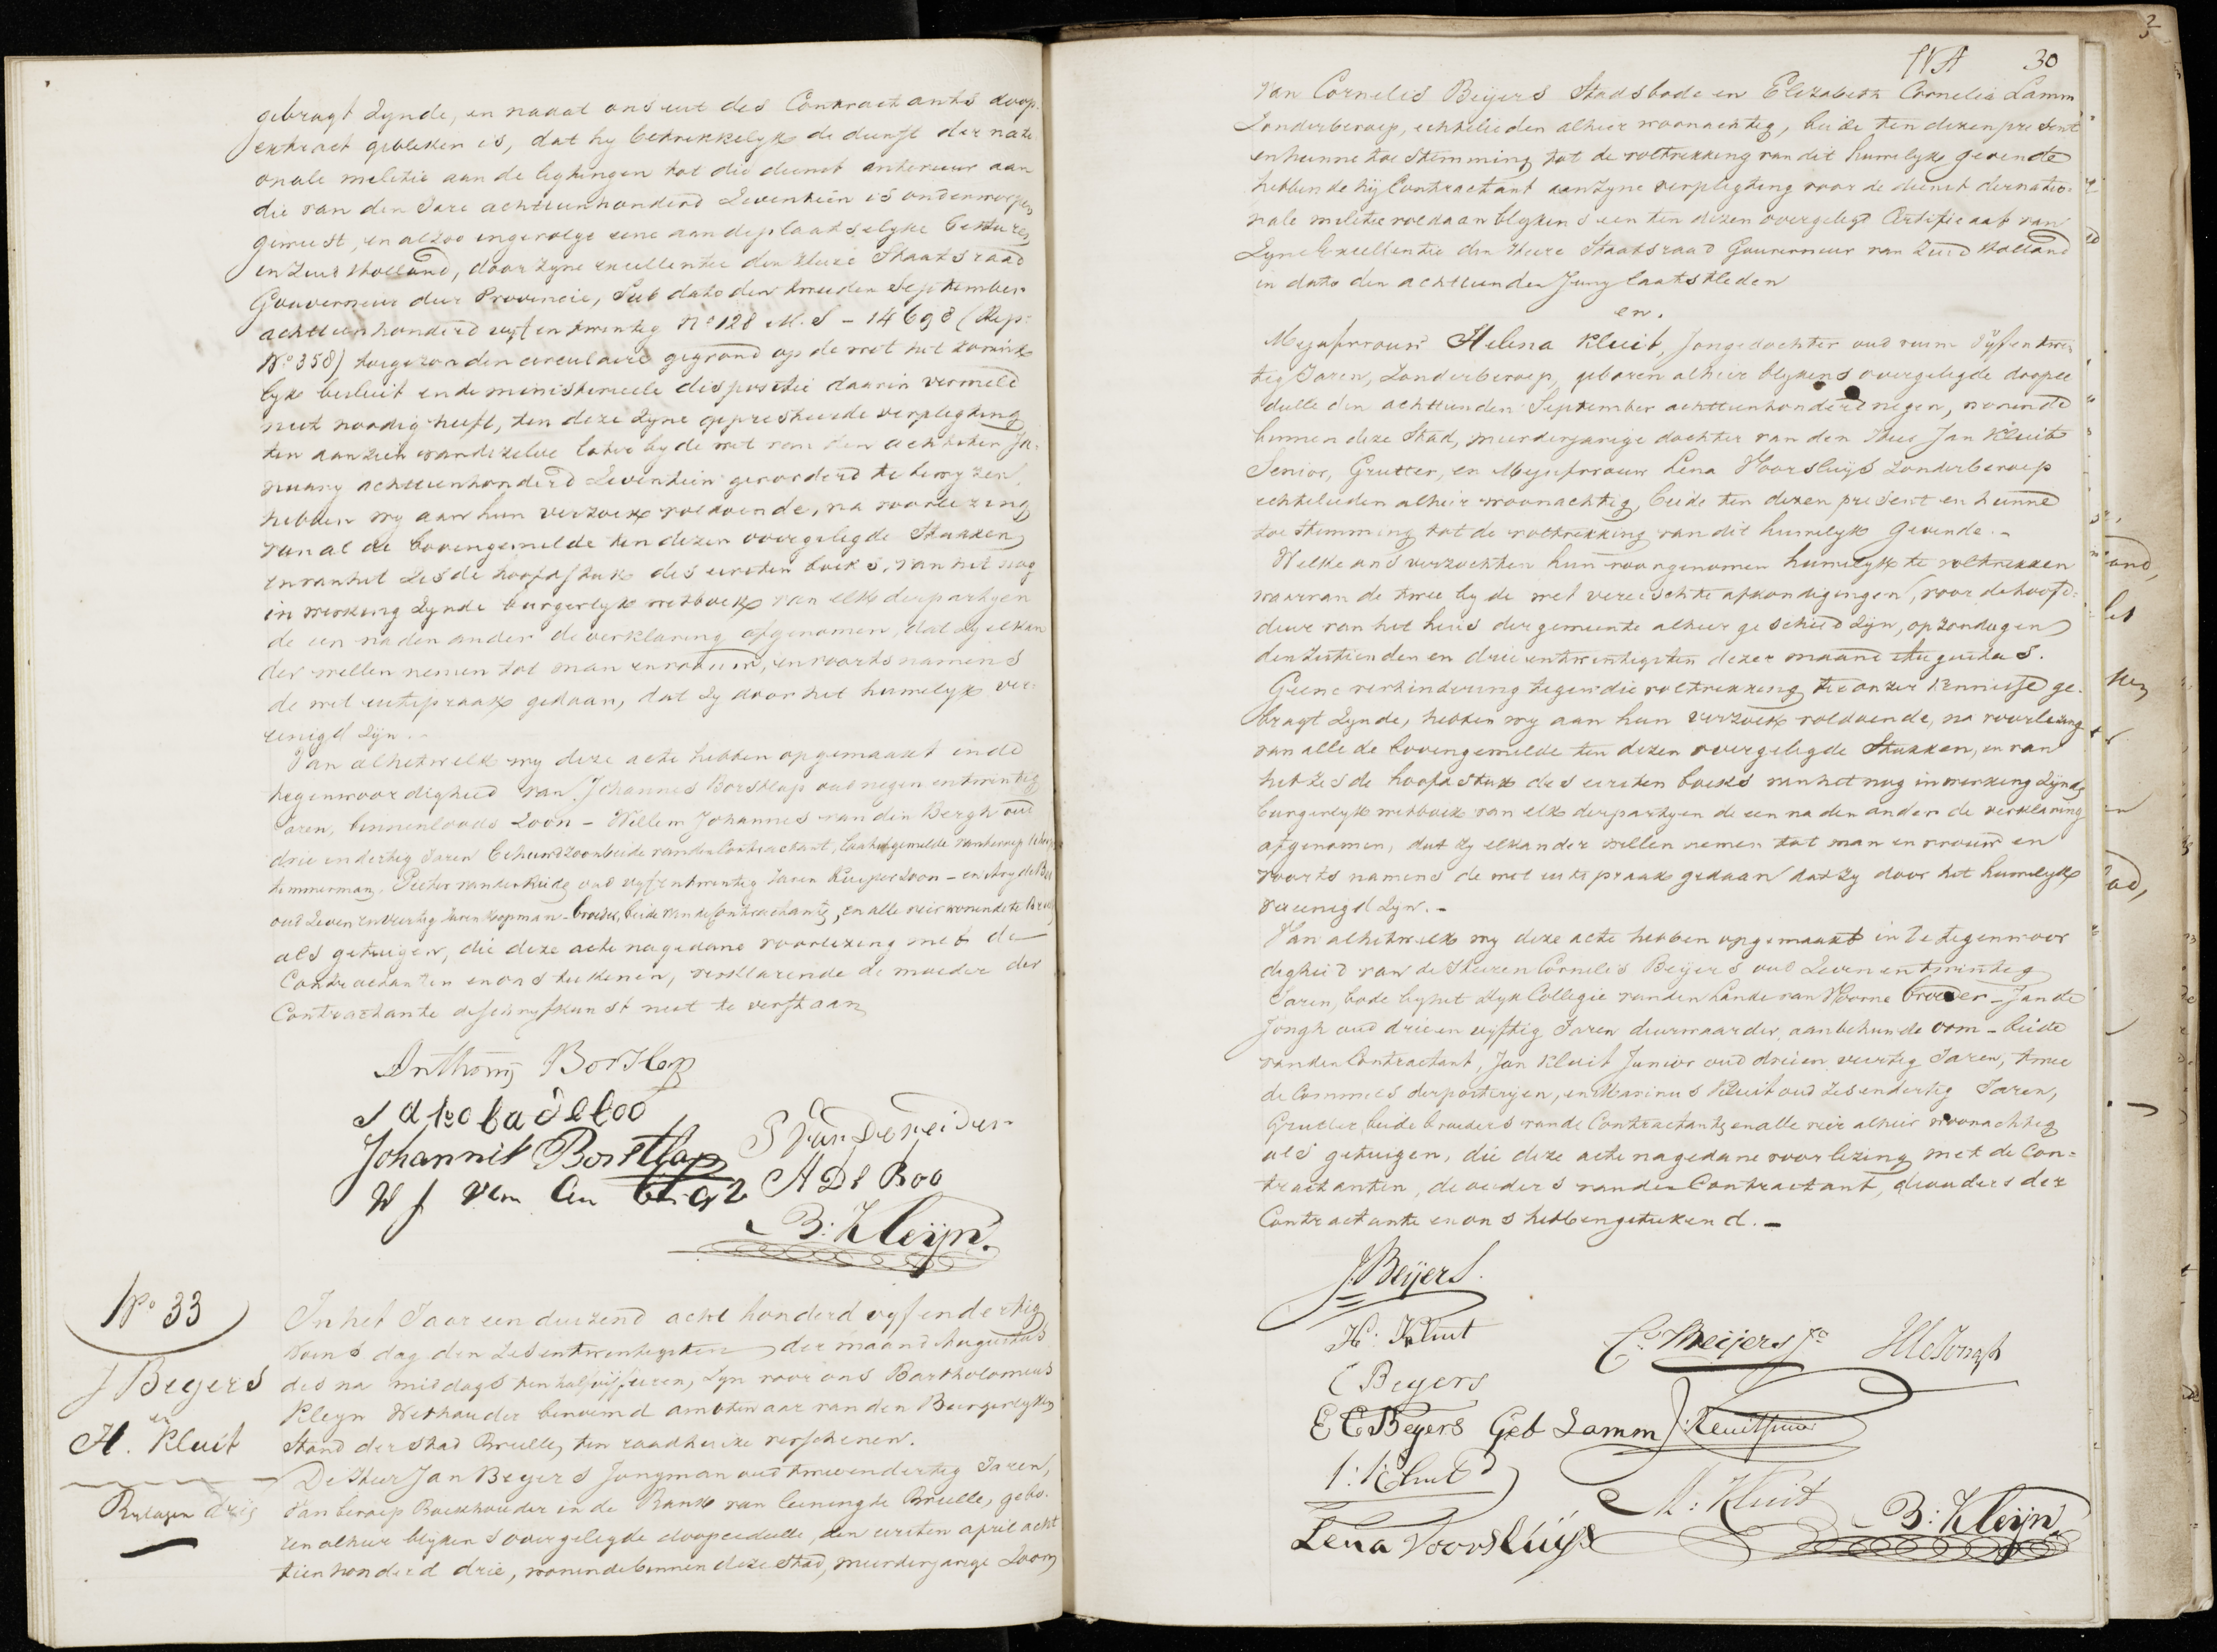 gebragt zynde, en nadat ons uit des Contractants doop-
extract gebleken is, dat hy betrekkelyk de dienst der nati
onale melitie aan de ligtingen tot die dienst anterieur aan
die van den Jare achttienhonderd zeventien is onderworpen
geweest, en alzoo ingevolge eene aan de plaatselyke besturen
in Zuid Holland, door zyne excellentie den Heere Staatsraad
Gouverneur der Provincie, sub dato den tweeden September
achttienhonderd vyf en twintig No 128 M.S - 14698 (Rep:
No 358) toegezonden circulaire gegrond op de wet het konink
lyk besluit en de ministerieele dispositie daarin vermeld
niet noodig heeft, ten deze zyne gepresteerde verpligting
ten aanzien van dezelve later by de wet van den achtsten Ja-
nuary achttienhonderd zeventien gevorderd te bewyzen,
hebben wy aan hun verzoek voldoende, na voorlezing
van al de bovengemelde ten dezen overgelegde Stukken
en van het zesde hoofdstuk des eersten boeks, van het nog
in werking zynde burgerlyk wetboek van elk der partyen
de een na den ander de verklaring afgenomen, dat zy elkan
der willen nemen tot man en vrouw, en voorts namens
de wet uitspraak gedaan, dat zy door het huwelyk ver-
eenigd zyn.-
Van al hetwelk wy deze acte hebben opgemaakt in de
tegenwoordigheid van Johannes Borstlap oud negen en twintig
Jaren, binnenloods zoon - Willem Johannes van den Bergh oud
drie en dertig Jaren behuwdzoon beide van den Contractant, laatstgemelde van beroep scheeps
timmerman, Pieter van der Reide oud vyf en twintig Jaren Kuiper zoon - en Ary de Boo
oud zeven en veertig Jaren koopman - broeder, beide van de Contractante, en alle vier wonende te Brielle
als getuigen, die deze acte na gedane voorlezing met de
Contractanten en ons teekenen, verklarende de moeder der
Contractante de schryfkunst niet te verstaan
Anthonij Borstlap
Jakoba de boo
Johannis Borstlap
P van De reiden
W J van den berg
A De Boo
B: Kleijn.
No 33
J Beyers
en
H. Kluit
Bylagen drie
In het Jaar een duizend acht honderd vyf en dertig
Woensdag den zes en twintigsten der maand Augustus
des na middags ten half vyf uren, zyn voor ons Bartholomeus
Kleyn Wethouder benoemd ambtenaar van den Burgerlyken
Stand der stad Brielle, ten raadhuize verschenen.
De Heer Jan Beyers Jongman oud twee en dertig Jaren,
van beroep Boekhouder in de Bank van leening te Brielle, gebo-
ren alhier blykens overgelegde doopcedulle, den eersten april acht
tien honderd drie, wonende binnen deze Stad, meerderjarige zoon
30
van Cornelis Beijers Stadsbode en Elizabeth Cornelia Lamm
zonder beroep, echtelieden alhier woonachtig, beide ten dezen present
en hunne toestemming tot de voltrekking van dit huwelyk gevende
hebbende hij Contractant aan zyne verpligting voor de dienst der natio-
nale militie voldaan blykens een ten dezen overgelegd Certificaat van
zyne Excellentie den Heere Staatsraad Gouverneur van Zuid Holland
in dato den achttienden Juny laatstleden
en.
Mejufvrouw Helena Kluit, Jongedochter oud ruim vijf en twin-
tig Jaren, zonder beroep, geboren alhier blykens overgelegde doopce
dulle den achttienden September achttienhonderd negen, wonende
binnen deze Stad, meerderjarige dochter van den Heer Jan Kluit
Senior, Grutter, en Mejufvrouw Lena Voorsluijs zonder beroep
echtelieden alhier woonachtig, beide ten dezen present en hunne
toestemming tot de voltrekking van dit huwelyk gevende.-
Welke ons verzochten hun voorgenomen huwelyk te voltrekken
waarvan de twee by de wet vereischte afkondigingen, voor de hoofd-
deur van het huis der gemeente alhier geschied zijn, op zondagen
den zestienden en drie en twintigsten dezer maand Augustus.
Geene verhindering tegen die voltrekking te onzer kennisse ge-
bragt zynde, hebben wy aan hun verzoek voldoende, na voorlezing
van alle de bovengemelde ten dezen overgelegde Stukken, en van
het zesde hoofdstuk des eersten boeks van het nog in werking zijnde
burgerlyk wetboek van elk der partyen de een na den ander de verklaring
afgenomen, dat zy elkander willen nemen tot man en vrouw en
voorts namens de wet uitspraak gedaan dat zy door het huwelyk
vereenigd zyn.-
Van al hetwelk wy deze acte hebben opgemaakt in de tegenwoor
digheid van de Heeren Cornelis Beijers oud zeven en twintig
Jaren, bode by het dyk Collegie van den Lande van Voorne broeder - Jan de
Jongh oud drie en vyftig Jaren deurwaarder, aanbehuwde oom - beide
van den Contractant, Jan Kluit Junior oud drie en veertig Jaren, twee
de Commies der posteryen, en Marinus Kluit oud zes en dertig Jaren,
Grutter beide broeders van de Contractante, en alle vier alhier woonachtig
als getuigen, die deze acte na gedane voorlezing met de Con-
tractanten, de ouders van den Contractant, de ouders der
Contractante en ons hebben geteekend.-
J. Beijers.
H. Kluit
Cs. Beijers Jr
J de Jongh
C Beyers
E C Beyers Geb Lamm
J: Kluit Junior
J: Kluit
M: Kluit
B: Kleijn
Lena Voorsluijs